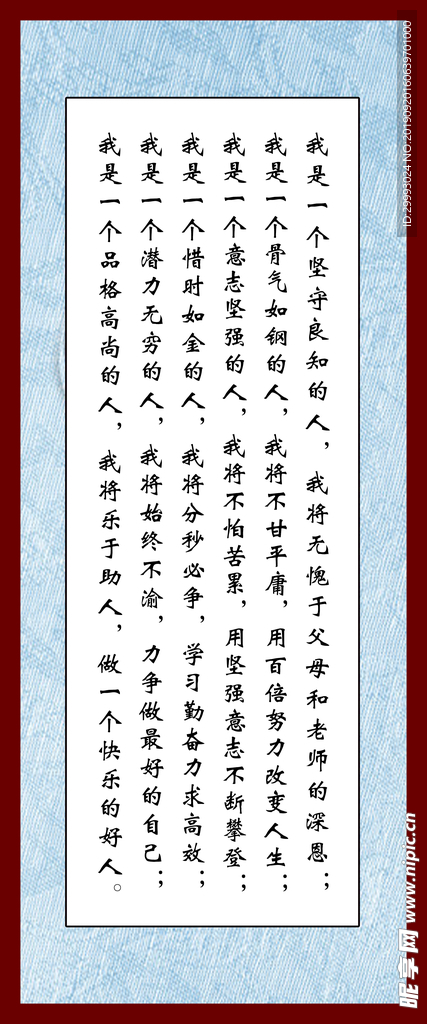 我是一个坚守良知的人，我将无愧于父母和老师的深恩；
我是一个骨气如钢的人，我将不甘平庸，用百倍努力改变人生；
我是一个意志坚强的人，我将不怕苦累，用坚强意志不断攀登；
我是一个惜时如金的人，我将分秒必争，学习勤奋力求高效；
我是一个潜力无穷的人，我将始终不渝，力争做最好的自己；
我是一个品格高尚的人，我将乐于助人，做一个快乐的好人。
ID:29993024 NO:20190920160639701000
昵享网 www.nipic.cn